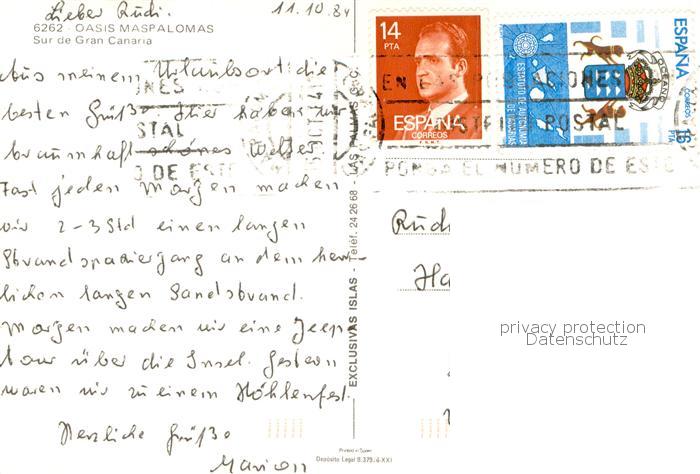 Lieber Rudi. 11.10.84
6262 - OASIS MASPALOMAS
Sur de Gran Canaria
Aus meinem Urlaubsort die
besten Grüße. Hier haben wir
traumhaft schönes Wetter.
Fast jeden Morgen machen
wir 2-3 Std einen langen
Strandspaziergang an dem herr-
lichen langen Sandstrand.
Morgen machen wir eine Jeep
tour über die Insel. Gestern
waren wir zu einem Höhlenfest.
Herzliche Grüße
Marion
EXCLUSIVAS ISLAS - Teléf. 24 26 68 - LAS PALMAS G.C.
Printed in Spain
Depósito Legal B.
14
PTA
ESPAÑA
CORREOS
F.N.M.T.
ESTATUTO DE AUTONOMIA
DE CANARIAS
OCEANO
ESPAÑA
correos
16
PTA
EN
POSTAL
PONGA EL NUMERO DE ESTE
Rudi
Ha
privacy protection
Datenschutz